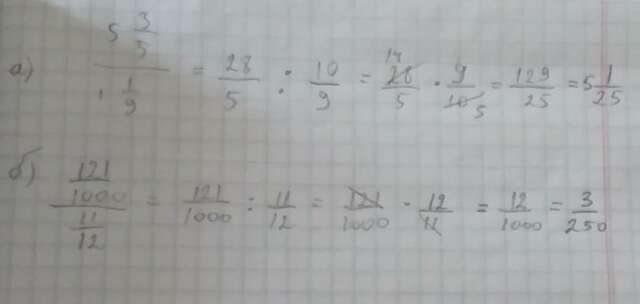 а) 5 3/5 / 1 1/9 = 28/5 : 10/9 = 28/5 14 · 9/10 5 = 129/25 = 5 1/25
б) 121/1000 / 11/12 = 121/1000 : 11/12 = 121/1000 · 12/11 = 12/1000 = 3/250